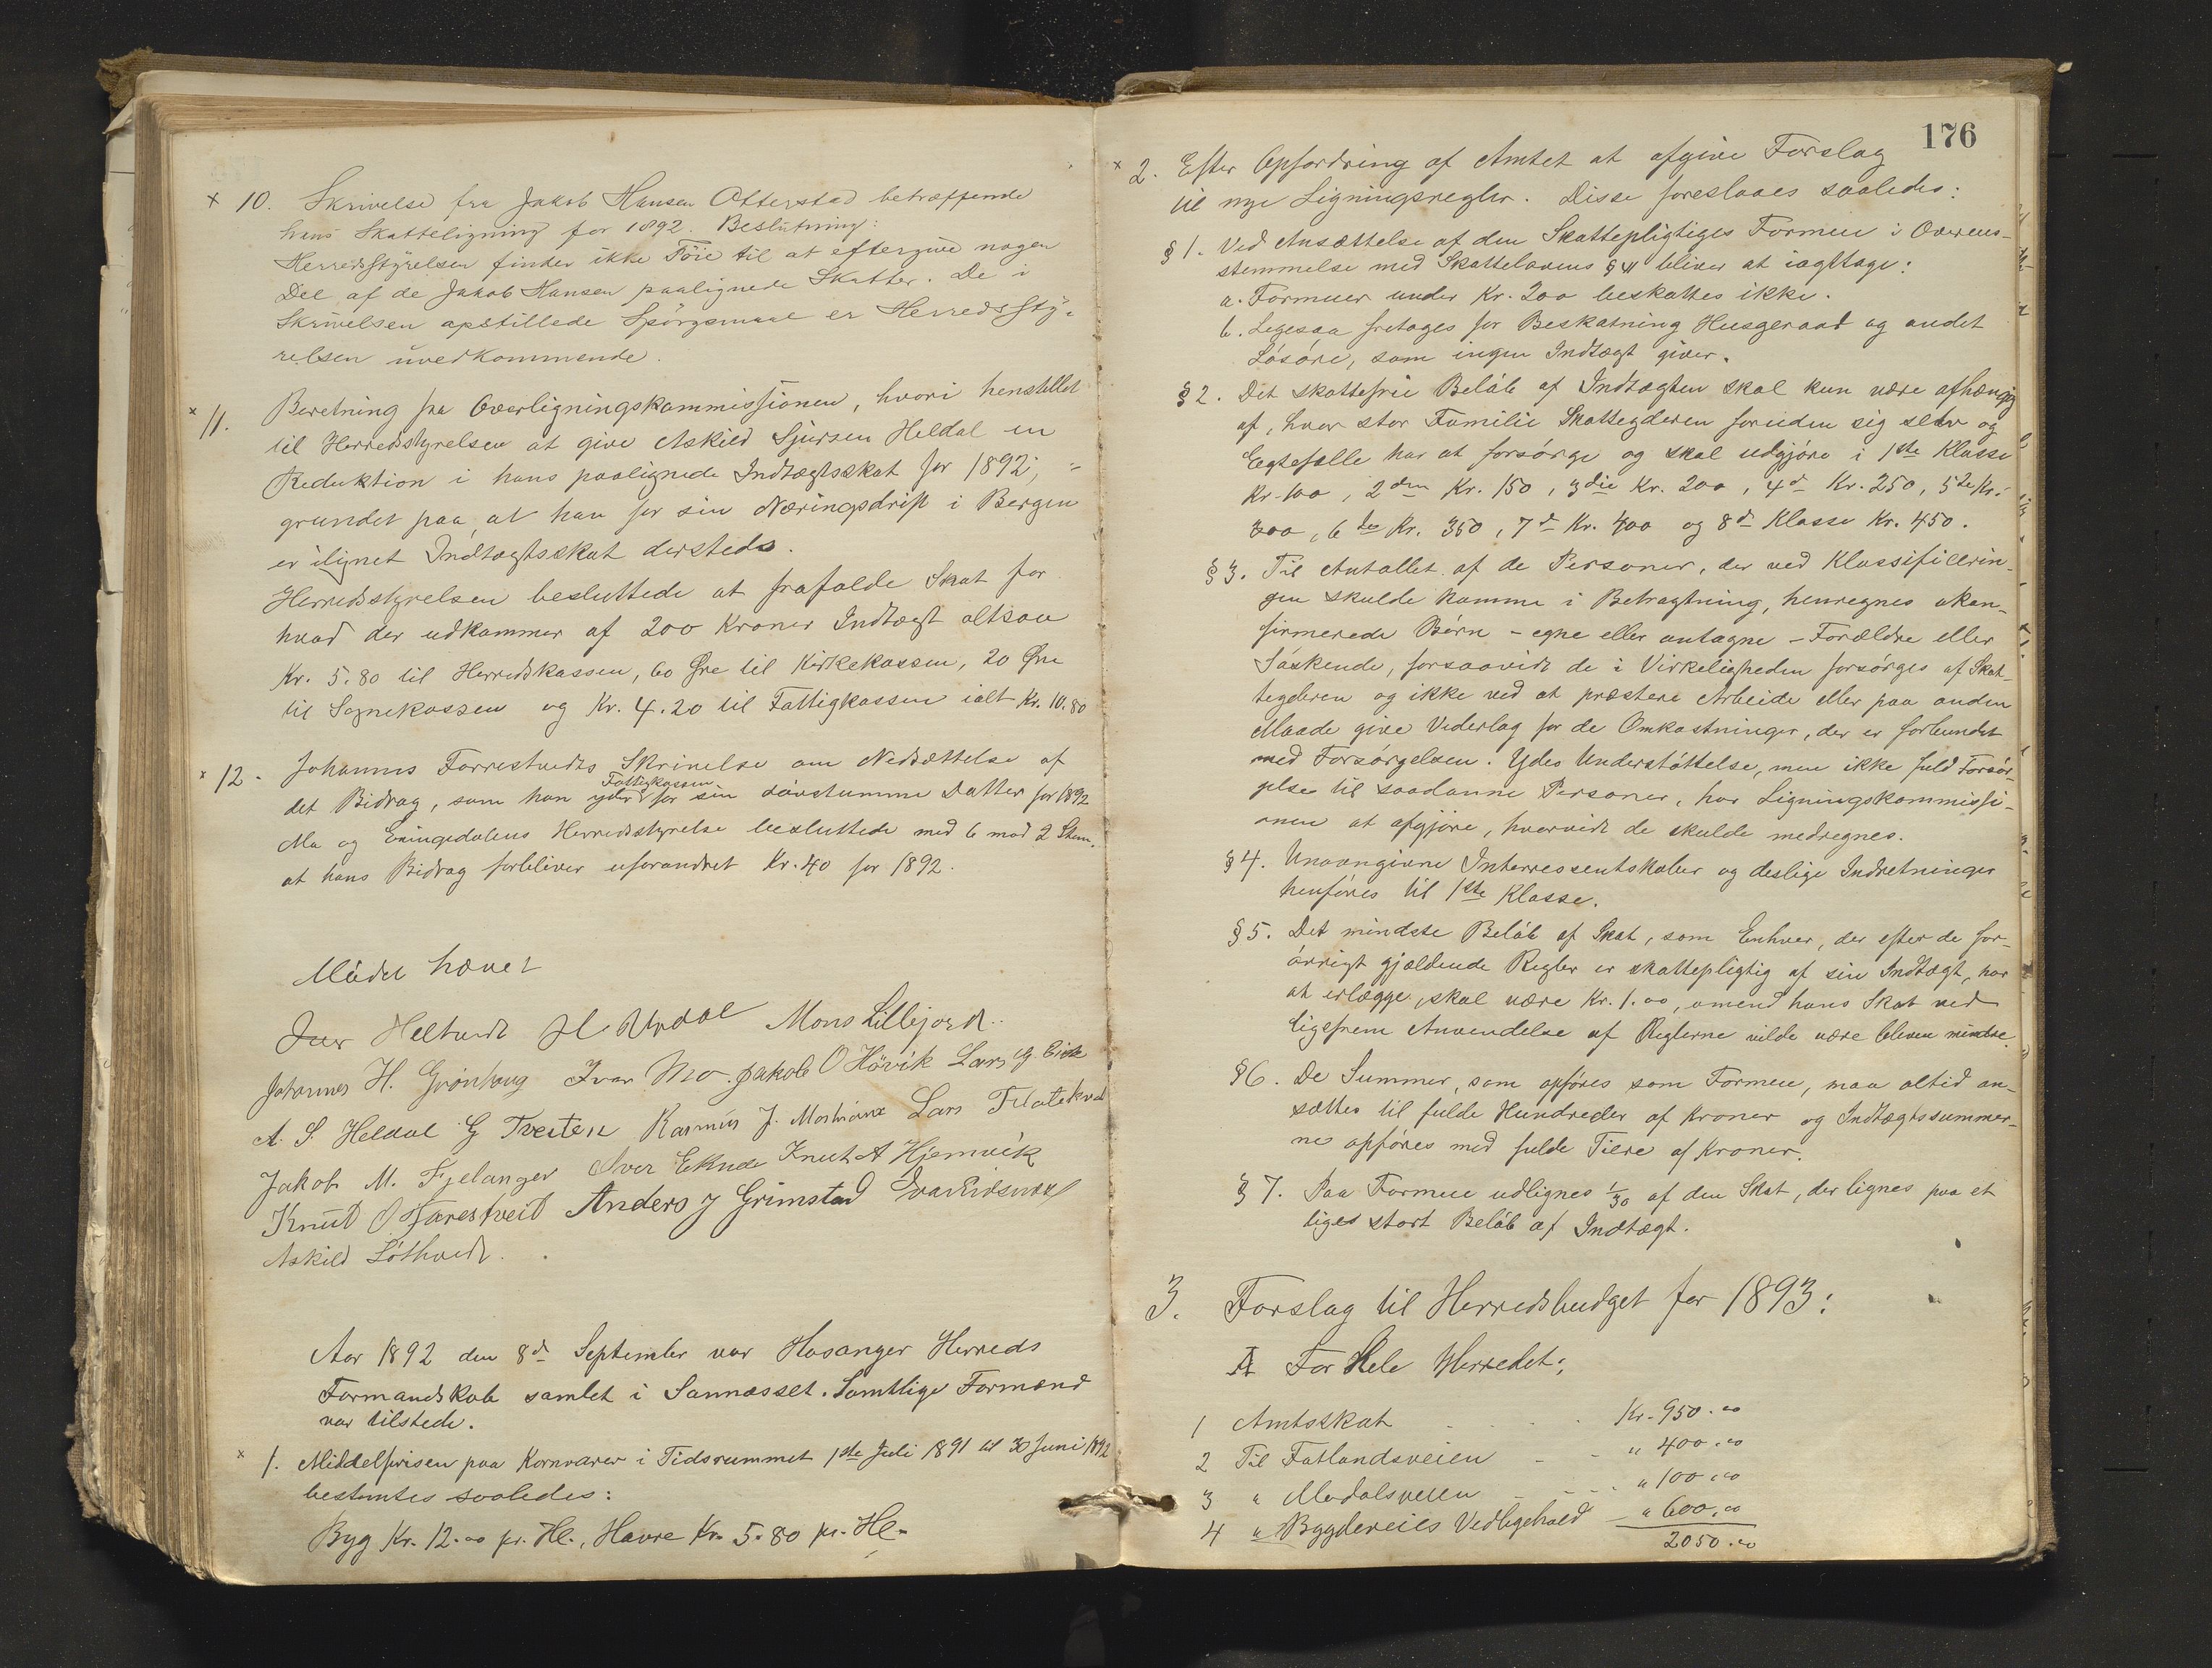 × 10. Skrivelse fra Jakob Hansen Otterstad betræffende
hans Skatteligning for 1892. Beslutning:
Herredsstyrelsen finder ikke Föie til at eftergive nogen
Del af de Jakob Hansen paalignede Skatter. De i
Skrivelsen opstillede Spörgsmaal er Herredssty-
relsen uvedkommende.
× 11. Beretning fra Overligningskommissionen, hvori henstilles
til Herredsstyrelsen at give Askild Sjursen Heldal en
Reduktion i hans paalignede Indtægtsskat for 1892,
grundet paa at han for sin Næringsdrift i Bergen
er ilignet Indtægtsskat dersteds.
Herredsstyrelsen besluttede at frafalde Skat for
hvad der udkommer af 200 Kroner Indtægt altsaa
Kr. 5.80 til Herredskassen, 60 Øre til Kirkekassen, 20 Øre
til Sognekassen og Kr. 4.20 til Fattigkassen ialt Kr. 10.80
× 12. Johannes Farrestvedts Skrivelse om Nedsættelse af
det Bidrag, som han yder Fattigkassen for sin dövstumme Datter for 1892
Mo og Eksingedalens Herredsstyrelse besluttede med 6 mod 2 Stem.
at hans Bidrag forbliver uforandret Kr. 40 for 1892.
Mödet hævet
Iver Heltvedt H Urdal Mons Lillejord
Johannes H. Grönhaug Ivar Mo Jakob O Hövik Lars G. Eide
A. S. Heldal G Tveiten Rasmus J. Lars Flatekval
Jakob M. Fjelanger Iver Eknes Knut A Hjemvik
Knud O Farestveit Anders J Grimstad
Askild Löthvedt.
Aar 1892 den 8d September var Hosanger Herreds
Formandskab samlet i Sannæsset. Samtlige Formænd
var tilstede.
× 1. Middelprisen paa Kornvarer i Tidsrummet 1ste Juli 1891 til 30 Juni 1892
bestemtes saaledes:
Byg Kr. 12.00 pr. Hl., Havre Kr. 5.80 pr. Hl.
176
× 2. Efter Opfordring af Amtet at afgive Forslag
til nye Ligningsregler. Disse foreslaaes saaledes:
§ 1. Ved Ansættelse af den Skattepligtiges Formue i Overens-
stemmelse med Skattelovens § 41 bliver at iagttage:
a. Formuer under Kr. 200 beskattes ikke.
b. Ligesaa fretages for Beskatning Husgeraad og andet
Lösöre, som ingen Indtægt giver.
§ 2. Det skattefrie Belöb af Indtægten skal kun være afhængig
af, hvor stor Familie Skatteyderen foruden sig selv og
Egtefælle har at forsörge og skal udgjöre i 1ste Klasse
Kr. 100, 2den Kr. 150, 3die Kr. 200, 4d Kr. 250, 5te Kr.
300, 6te Kr. 350, 7d Kr. 400 og 8d Klasse Kr. 450.
§ 3. Til Antallet af de Personer, der ved Klassificerin-
gen skulde komme i Betragtning, henregnes ukon-
firmerede Börn - egne eller antagne - Forældre eller
Söskende, forsaavidt de i Virkeligheden forsörges af Skat-
teyderen og ikke ved at præstere Arbeide eller paa anden
Maade give Vederlag for de Omkostninger, der er forbundet
med Forsörgelsen. Ydes Understöttelse, men ikke fuld Forsör-
gelse til saadanne Personer, har Ligningskommissi-
onen at afgjöre, hvorvidt de skulde medregnes.
§ 4. Unavngivne Interressentskaber og deslige Indretninger
henföres til 1ste Klasse.
§ 5. Det mindste Belöb af Skat, som Enhver, der efter de for-
övrigt gjældende Regler er skattepligtig af sin Indtægt, har
at erlægge, skal være Kr. 1.00, omend hans Skat ved
ligefrem Anvendelse af Reglerne vilde være bleven mindre.
§ 6. De Summer, som opföres som Formue, maa altid an-
sættes til fulde Hundreder af Kroner og Indtægtssummer-
ne opföres med fulde Tiere af Kroner.
§ 7. Paa Formue udlignes 1/30 af den Skat, der lignes paa et
liges stort Belöb af Indtægt.
3. Forslag til Herredsbudget for 1893:
A For Hele Herredet:
1 Amtsskat Kr. 950.00
2 Til Fatlandsveien " 400.00
3 " Modalsveien " 100.00
4 " Bygdeveiels Vedligehold " 600.00
2050.00